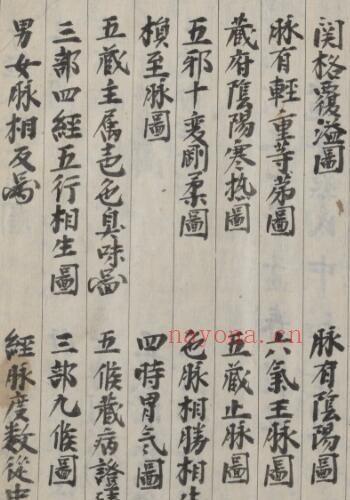 関格覆溢圖
脉有陰陽圖
脉有輕重等苐圖
六氣王脉圖
藏府陰陽寒热圖
五藏止脉圖
五邪十変剛柔圖
色脉相勝相生
損至脉圖
四時胃氣圖
五藏主属声色臭味圖
五候藏病證
三部四經五行相生圖
三部九候圖
男女脉相反圖
經脉度数從
nayona.cn